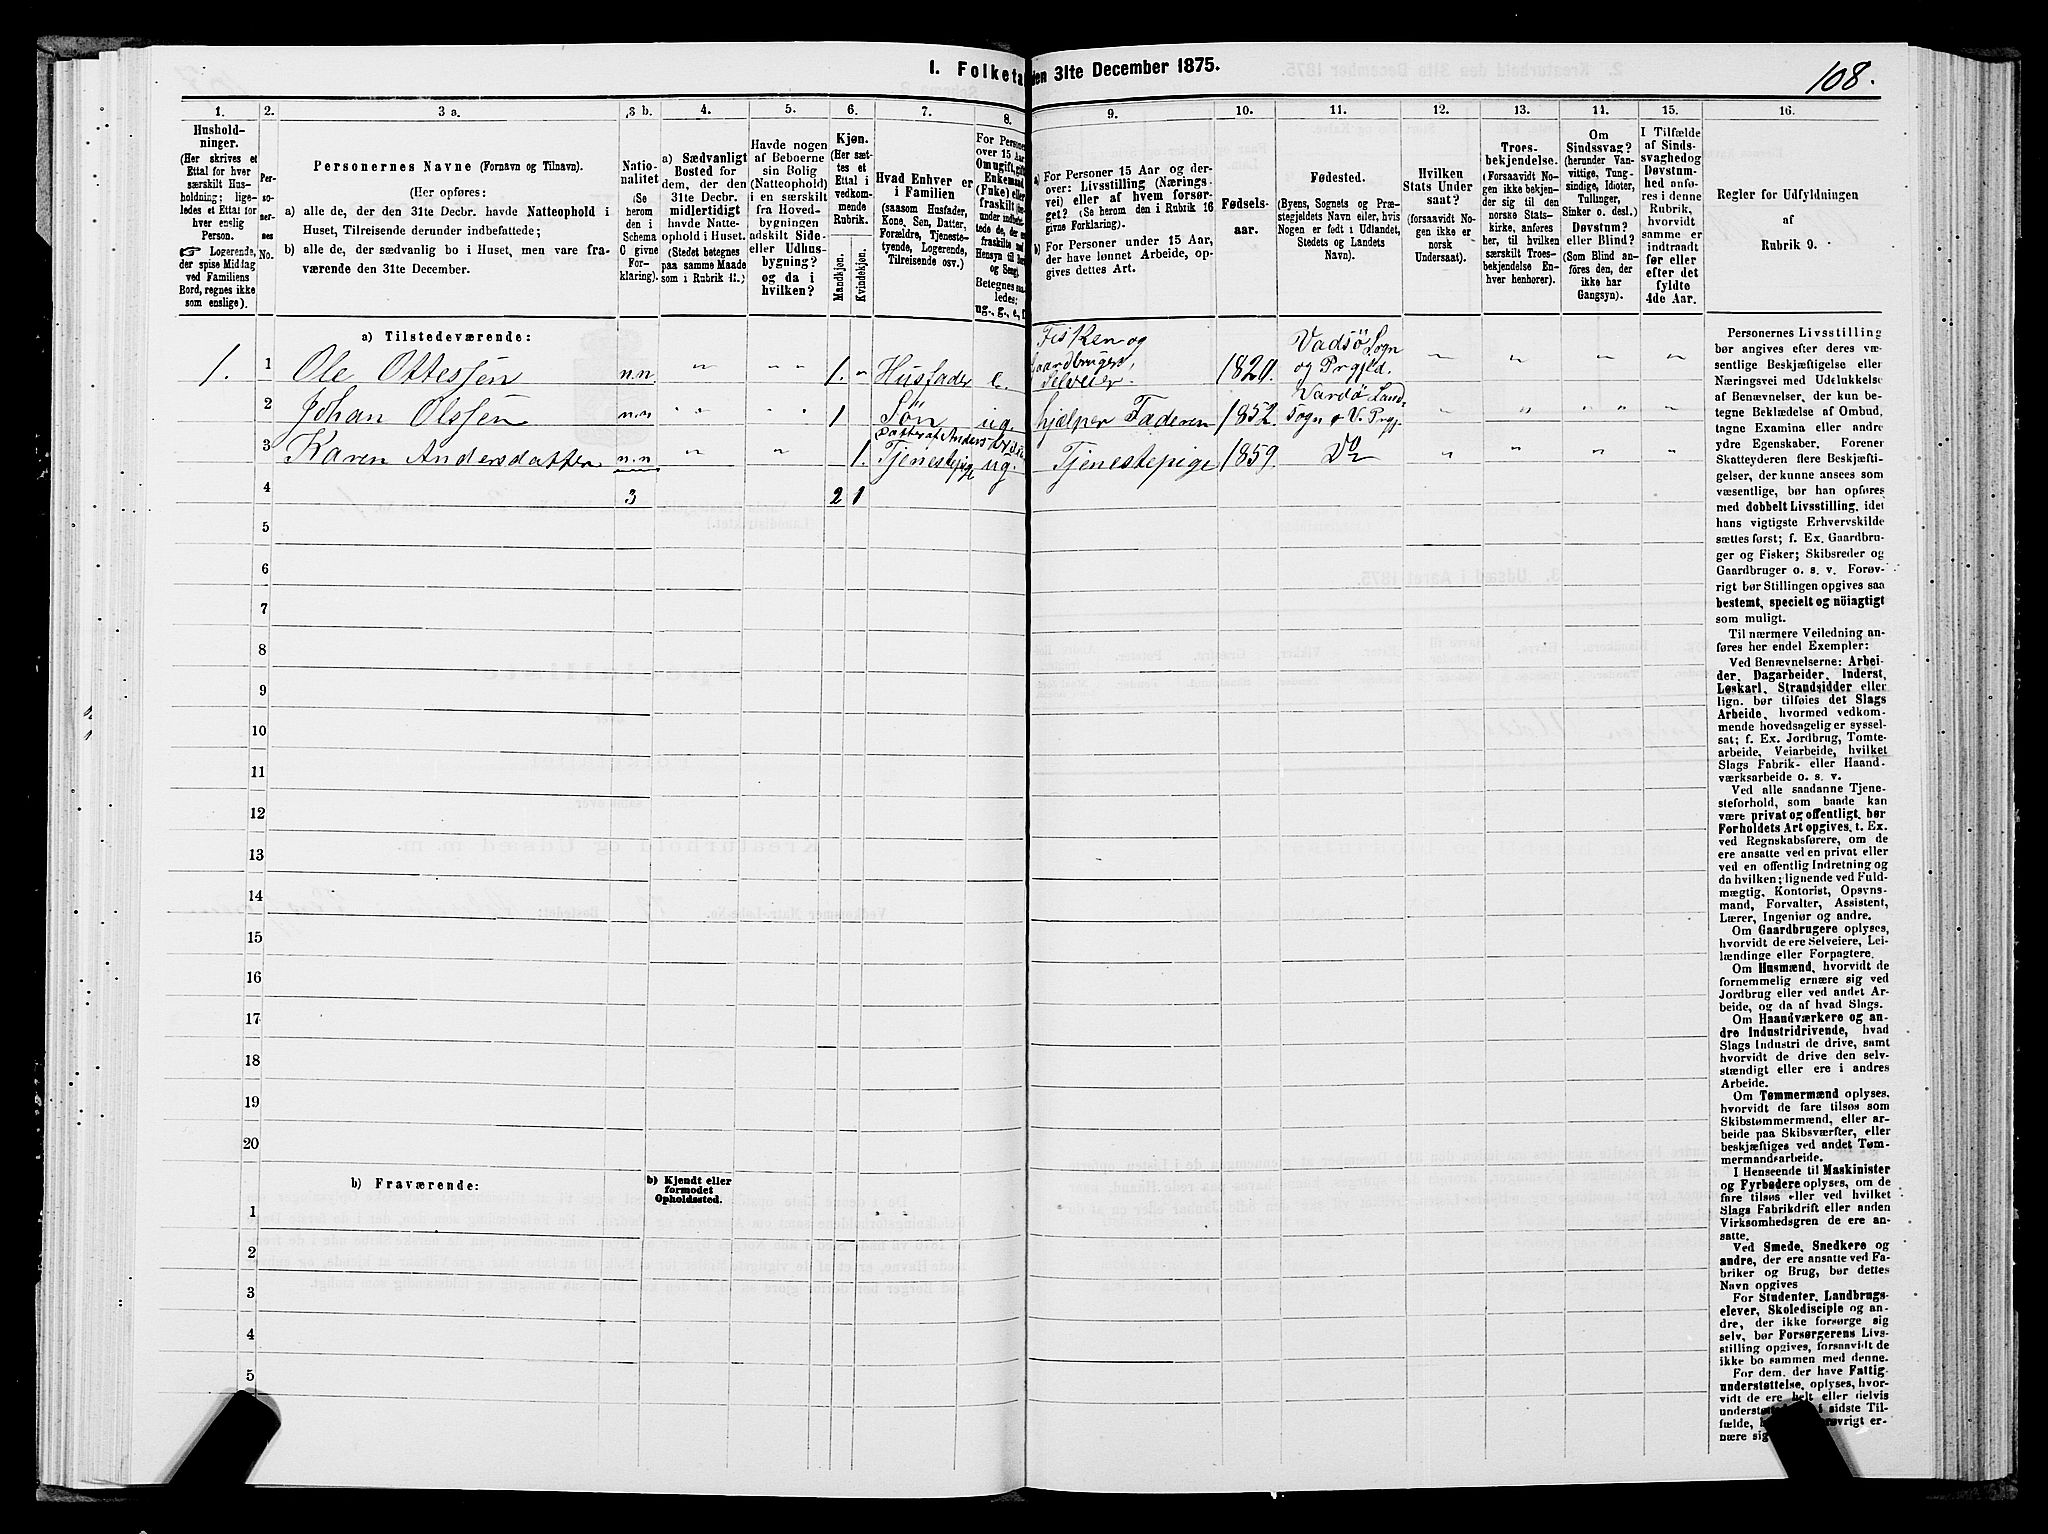 1. Folketæ
den 31te December 1875.
108.
1.
2.
3 a.
3 b.
4.
5.
6.
7.
8.
9.
10.
11.
12.
13.
11.
15.
16.
Hushold-
ninger.
(Her skrives et
Ettal for hver
særskilt Hus-
holdning; lige-
ledes et Ettal for
hver enslig
Person.
☞ Logerende,
der spise Middag
ved Familiens
Bord, regnes ikke
som enslige).
Per-
soner-
nes
No.
Personernes Navne (Fornavn og Tilnavn).
(Her opføres:
a) alle de, der den 31te Decbr. havde Natteophold i
Huset, Tilreisende derunder indbefattede;
b) alle de, der sædvanlig bo i Huset, men vare fra-
værende den 31te December.
Natio-
nalitet
(Se
herom
den i
Schema
C givne
For-
klaring).
a) Sædvanligt
Bosted for
dem, der den
31te Decbr.
midlertidigt
havde Natte-
ophold i Huset.
(Stedet betegnes
paa samme Maade
som i Rubrik 11.)
Havde nogen
af Beboerne
sin Bolig
(Natteophold)
i en særskilt
fra Hoved-
bygningen
adskilt Side-
eller Udhus-
bygning?
og da i
hvilken?
Kjøn.
(Her sæt-
tes et
Ettal i
vedkom-
mende
Rubrik.
Mandkjøn.
Kvindekjøn.
Hvad Enhver er
i Familien
(saasom Husfader,
Kone, Søn, Datter,
Forældre, Tjeneste-
tyende, Logerende,
Tilreisende osv.)
For Personer
over 15 Aar:
Omugift, gift,
Enkemand
(Enke) eller
fraskilt
ledes:
ug., g., e., f.
a) For Personer 15 Aar og der-
over: Livsstilling (Nærings-
vei) eller af hvem forsør-
get? (Se herom den i Rubrik 16
givne Forklaring).
b) For Personer under 15 Aar,
der have lønnet Arbeide, op-
gives dettes Art.
Fødsels-
aar.
Fødested.
(Byens, Sognets og Præ-
stegjeldets Navn eller, hvis
Nogen er født i Udlandet,
Stedets og Landets
Navn).
Hvilken
Stats Under-
saat?
(forsaavidt No-
gen ikke er
norsk
Undersaat).
Troes-
bekjendelse.
(Forsaavidt No-
gen ikke bekjen-
der sig til den
norske Stats-
kirke, anføres
her, til hvilken
særskilt Troes-
bekjendelse En-
hver henhører).
Om
Sindssvag?
(herunder Van-
vittige, Tung-
sindige, Idioter,
Tullinger,
Sinker o. desl.)
Døvstum?
eller Blind?
(Som Blind an-
føres den, der
ikke har
Gangsyn).
I Tilfælde
af Sinds-
svaghed og
Døvstum-
hed anfø-
res i denne
Rubrik,
hvorvidt
samme er
indtraadt
før eller
efter det
fyldte
4de Aar.
Regler for Udfyldningen
af
Rubrik 9.
a) Tilstedeværende:
1. 1 Ole Ottessen n.n. " " 1. " Husfader e. Fisker og Gaardbruger, Selveier. 1820. Vadsö Sogn og Prgjld. " " " "
2 Johan Olssen n.n " " 1 Sön ug. hjælper Faderen 1852. Vardö Land- Sogn o V. Prgj. " " " "
3 Karen Andersdatter n.n " " 1. Datter af Anders Tjenestepige ug. Tjenestepige 1859. Do " " " "
4 3 2 1
5
6
7
8
9
10
11
12
13
14
15
16
17
18
19
20
b) Fraværende:
b) Kjendt eller
formodet
Opholdssted.
1
2
3
4
5
Personernes Livsstilling
bør angives efter deres væ-
sentlige Beskjæftigelse eller
Næringsvei med Udelukkelse
af Benævnelser, der kun be-
tegne Beklædelse af Ombud,
tagne Examina eller andre
ydre Egenskaber. Forener
Skatteyderen flere Beskjæfti-
gelser, der kunne ansees som
væsentlige, bør han opføres
med dobbelt Livsstilling, idet
hans vigtigste Erhvervskilde
sættes først; f. Ex. Gaardbru-
ger og Fisker; Skibsreder og
Gaardbruger o. s. v. Forøv-
rigt bør Stillingen opgives saa
bestemt, specielt og nöiagtigt
som muligt.
Til nærmere Veiledning an-
føres her endel Exempler:
Ved Benævnelserne: Arbei-
der, Dagarbeider, Inderst,
Løskarl, Strandsidder eller
lign. bør tilføies det Slags
Arbeide, hvormed vedkom-
mende hovedsagelig er syssel-
sat; f. Ex. Jordbrug, Tomte-
arbeide, Veiarbeide, hvilket
Slags Fabrik- eller Haand-
værksarbeide o. s. v.
Ved alle saadanne Tjene-
steforhold, som baade kan
være privat og offentligt, bør
Forholdets Art opgives, t. Ex.
ved Regnskabsførere, om de
ere ansatte ved en privat eller
ved en offentlig Indretning og
da hvilken; lignende ved Fuld-
mægtig, Kontorist, Opsyns-
mand, Forvalter, Assistent,
Lærer, Ingeniør og andre.
Om Gaardbrugere oplyses,
hvorvidt de ere Selveiere, Lei-
lændinge eller Forpagtere.
Om Husmænd, hvorvidt de
fornemmelig ernære sig ved
Jordbrug eller ved andet Ar-
beide, og da af hvad Slags.
Om Haandværkere og an-
dre Industridrivende, hvad
Slags Industri de drive, samt
hvorvidt de drive den selv-
stændigt eller ere i andres
Arbeide.
Om Tømmermænd oplyses,
hvorvidt de fare tilsøs som
Skibstømmermænd, eller ar-
beide paa Skibsværfter, eller
beskjæftiges ved andet Tøm-
mermandsarbeide.
I Henseende til Maskinister
og Fyrbødere oplyses, om de
fare tilsøs eller ved hvilket
Slags Fabrikdrift eller anden
Virksomhedsgren de ere an-
satte.
Ved Smede, Snedkere og
andre, der ere ansatte ved Fa-
briker og Brug, bør dettes
Navn opgives
For Studenter, Landbrugs-
elever, Skoledisciple og an-
dre, der ikke forsørge sig
selv, bør Forsørgerens Livs-
stilling opgives, forsaavidt de
ikke bo sammen med denne.
For dem, der have Fattig-
understøttelse, oplyses, hvor-
vidt de ere helt eller delvis
i sidste Til-
fælde,
ere er-
nære sig